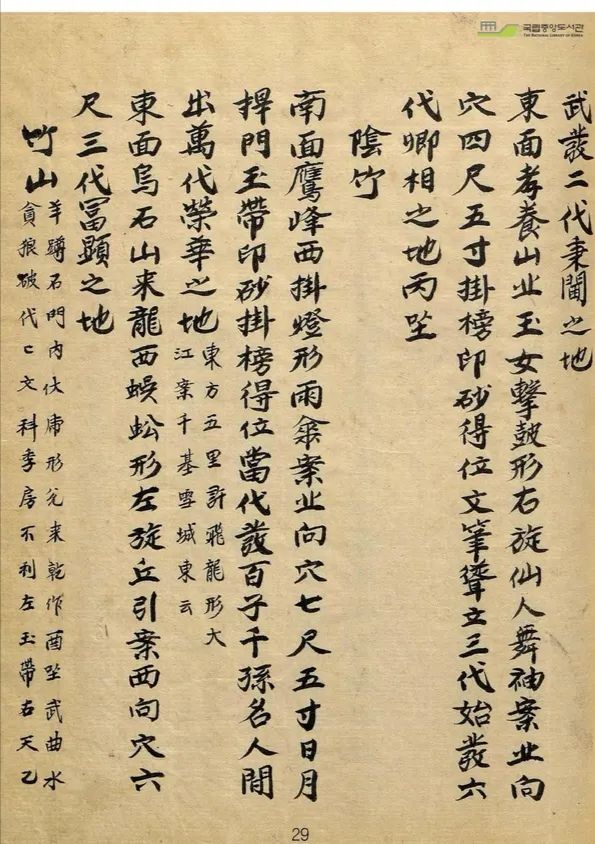 국립중앙도서관
THE NATIONAL LIBRARY OF KOREA
武發二代秉閫之地
東面孝養山北玉女擊鼓形右旋仙人舞袖案北向
穴四尺五寸掛榜印砂得位文筆聳立三代始發六
代卿相之地丙坐
陰竹
南面鷹峰西掛燈形雨傘案北向穴七尺五寸日月
捍門玉帶印砂掛榜得位當代發百子千孫名人間
出萬代榮華之地
東方五里許飛龍形大
江案千基雪城東云
東面烏石山來龍西蜈蚣形左旋丘引案西向穴六
尺三代冨顯之地
竹山
羊蹲石門內伏庿形兊来乾作酉坐武曲水
貪狼破代亡文科李房不利左玉帶右天乙
29